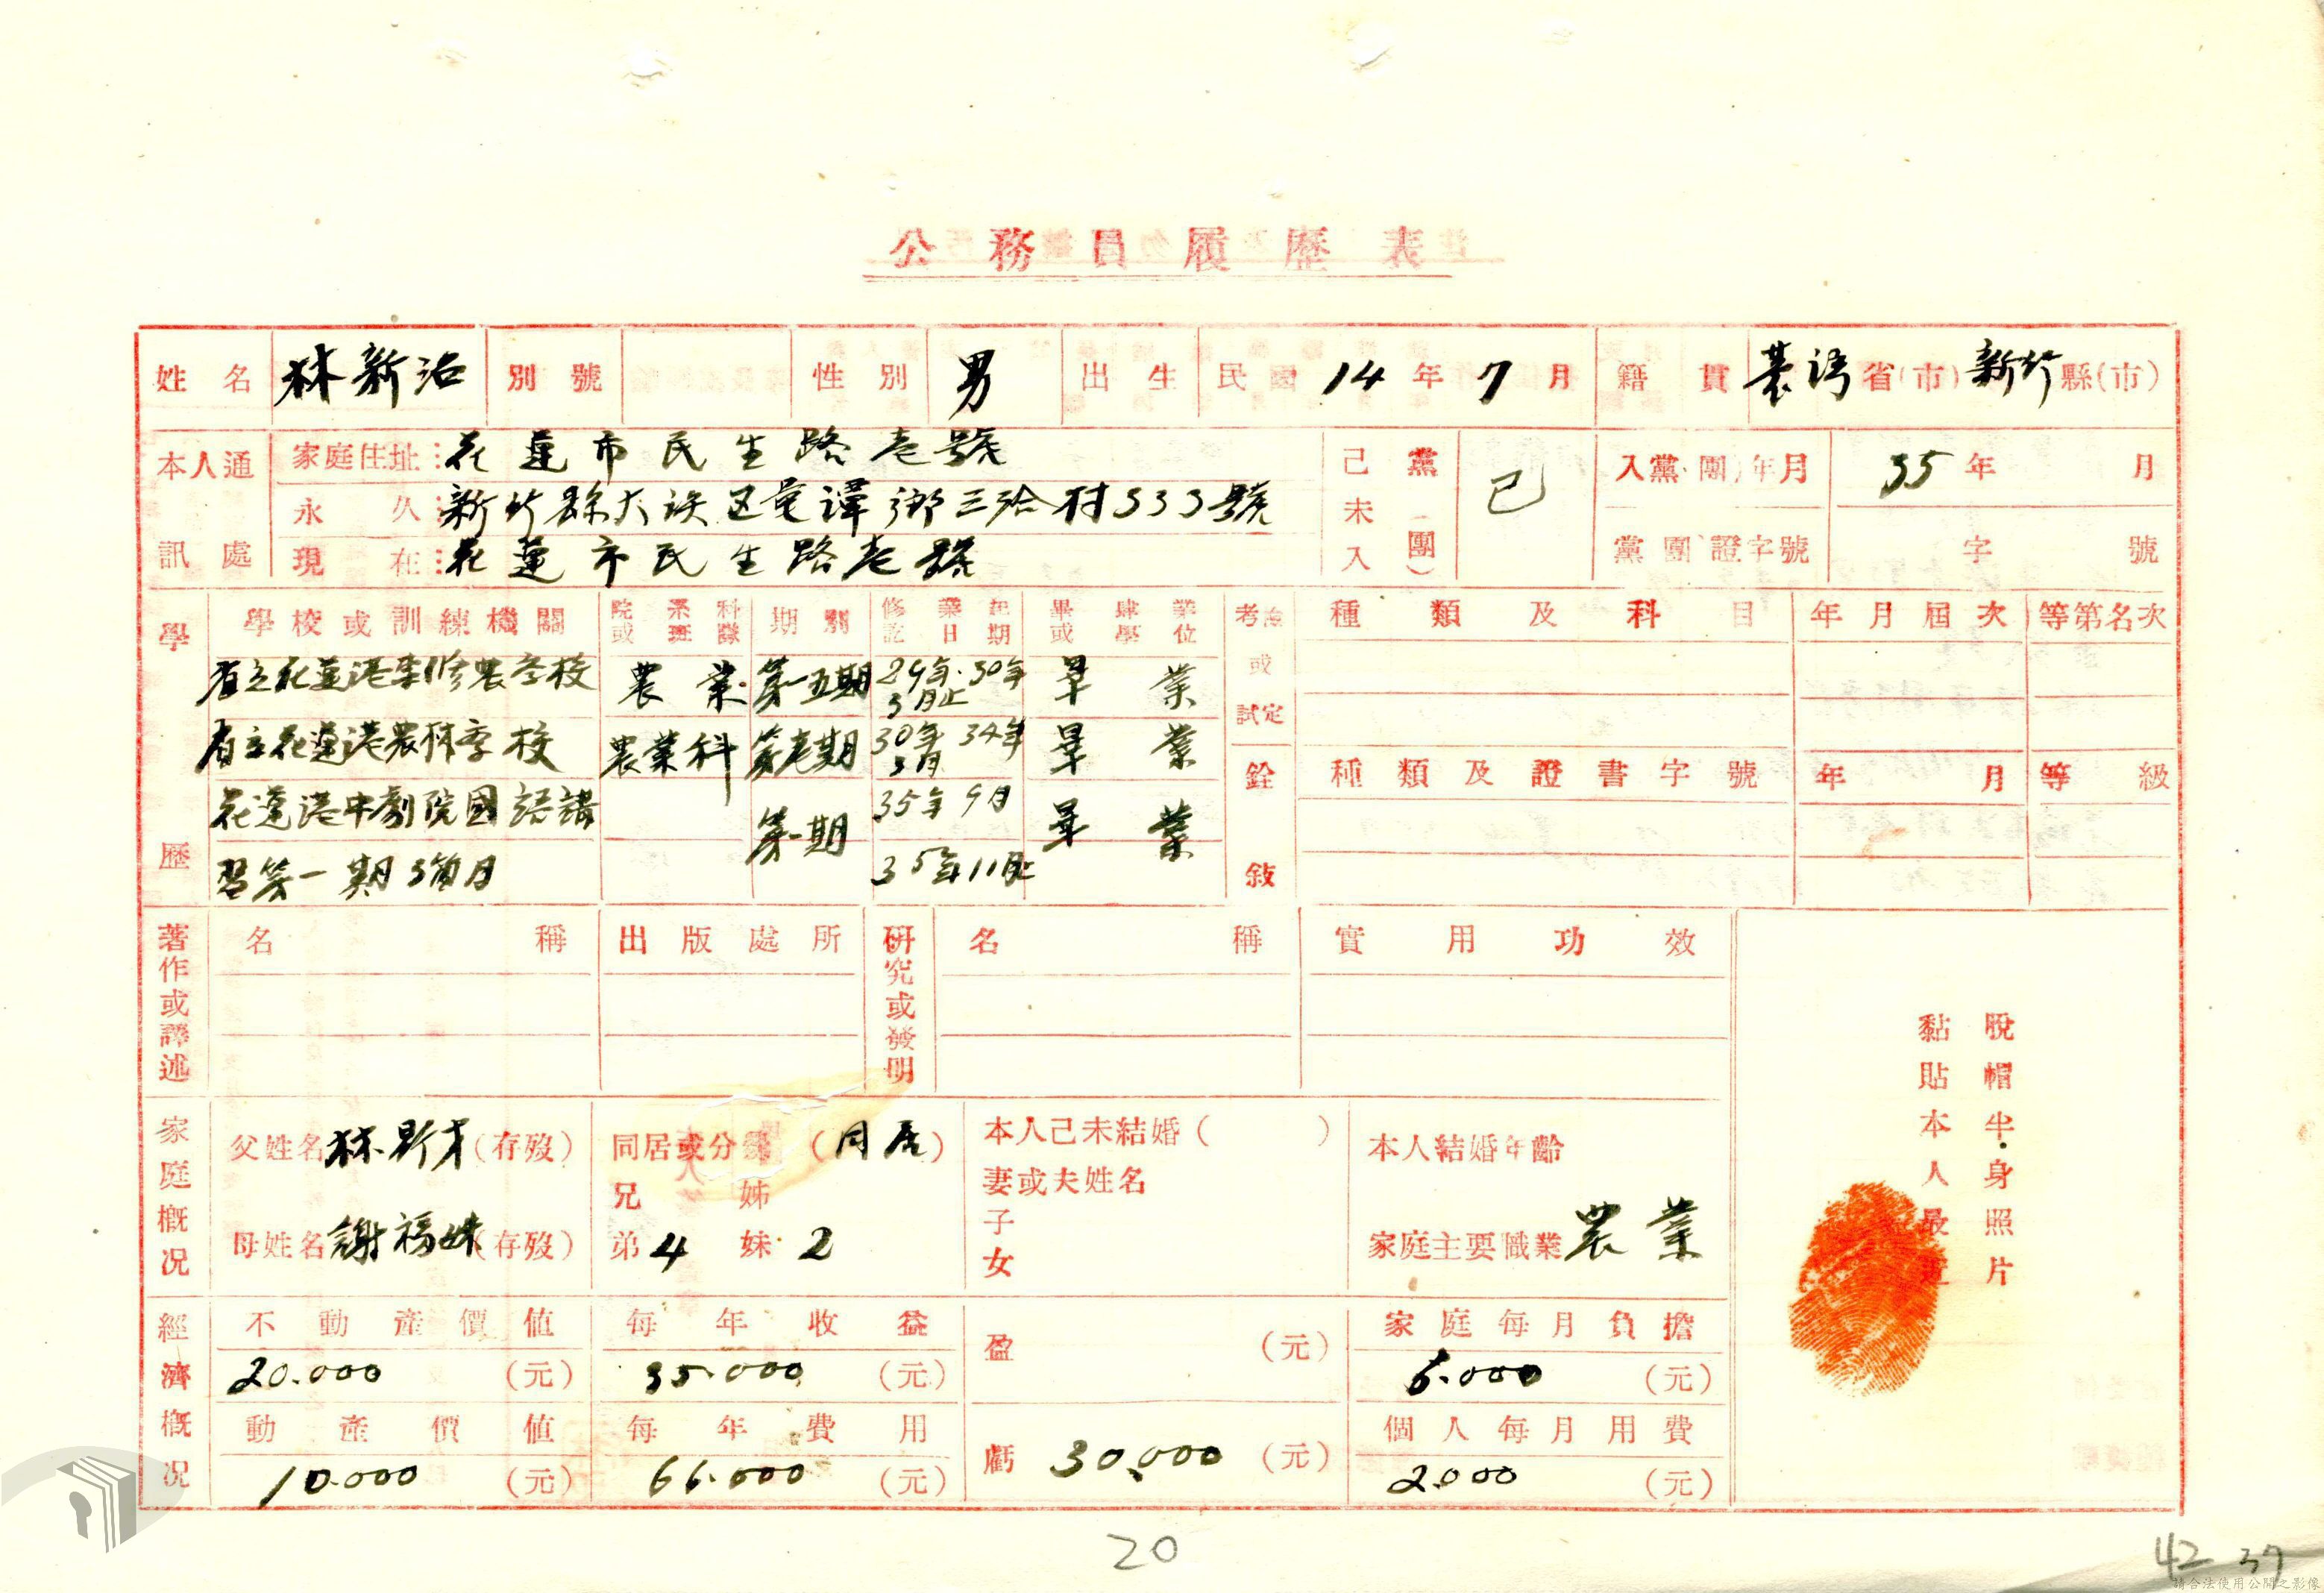 公務員履歷表
姓名 林新治 別號 性別 男 出生 民國 14 年 7 月 籍貫 臺灣 省(市) 新竹 縣(市)
本人通訊處
家庭住址：花蓮市民生路壱號
永久：新竹縣大 三洽村533號
現在：花蓮市民生路壱號
己未入黨(團) 已
入黨(團)年月 35 年 月
黨團證字號 字 號
學歷
學校或訓練機關 院系科或班隊 期別 修業起訖日期 畢肄業或學位
省立花蓮港 農 校 農業 第五期 29年.30年3月止 畢業
省立花蓮港農林 校 農業科 第壱期 30年 34年3月 畢業
花蓮港中劇院國語講 第一期 35年9月 畢業
習第一期3箇月 35年11月止
考 或試定 種類及科目 年月屆次 等第名次
銓敍 種類及證書字號 年月 等級
著作或譯述 名稱 出版處所
研究或發明 名稱 實用功效
脫帽半身照片
黏貼本人最近
家庭概况
父姓名 林 (存歿) 同居或分 (同居) 本人己未結婚( ) 本人結婚年齡
兄弟 4 姊妹 2 妻或夫姓名
母姓名 謝福妹 (存歿) 子女 家庭主要職業 農業
經濟概况
不動產價值 每年收益 盈 (元) 家庭每月負擔
20.000 (元) 35.000 (元) 6.000 (元)
動產價值 每年費用 虧 30,000 (元) 個人每月用費
10.000 (元) 66.000 (元) 2.000 (元)
20
42 37
請合法使用公開之影像